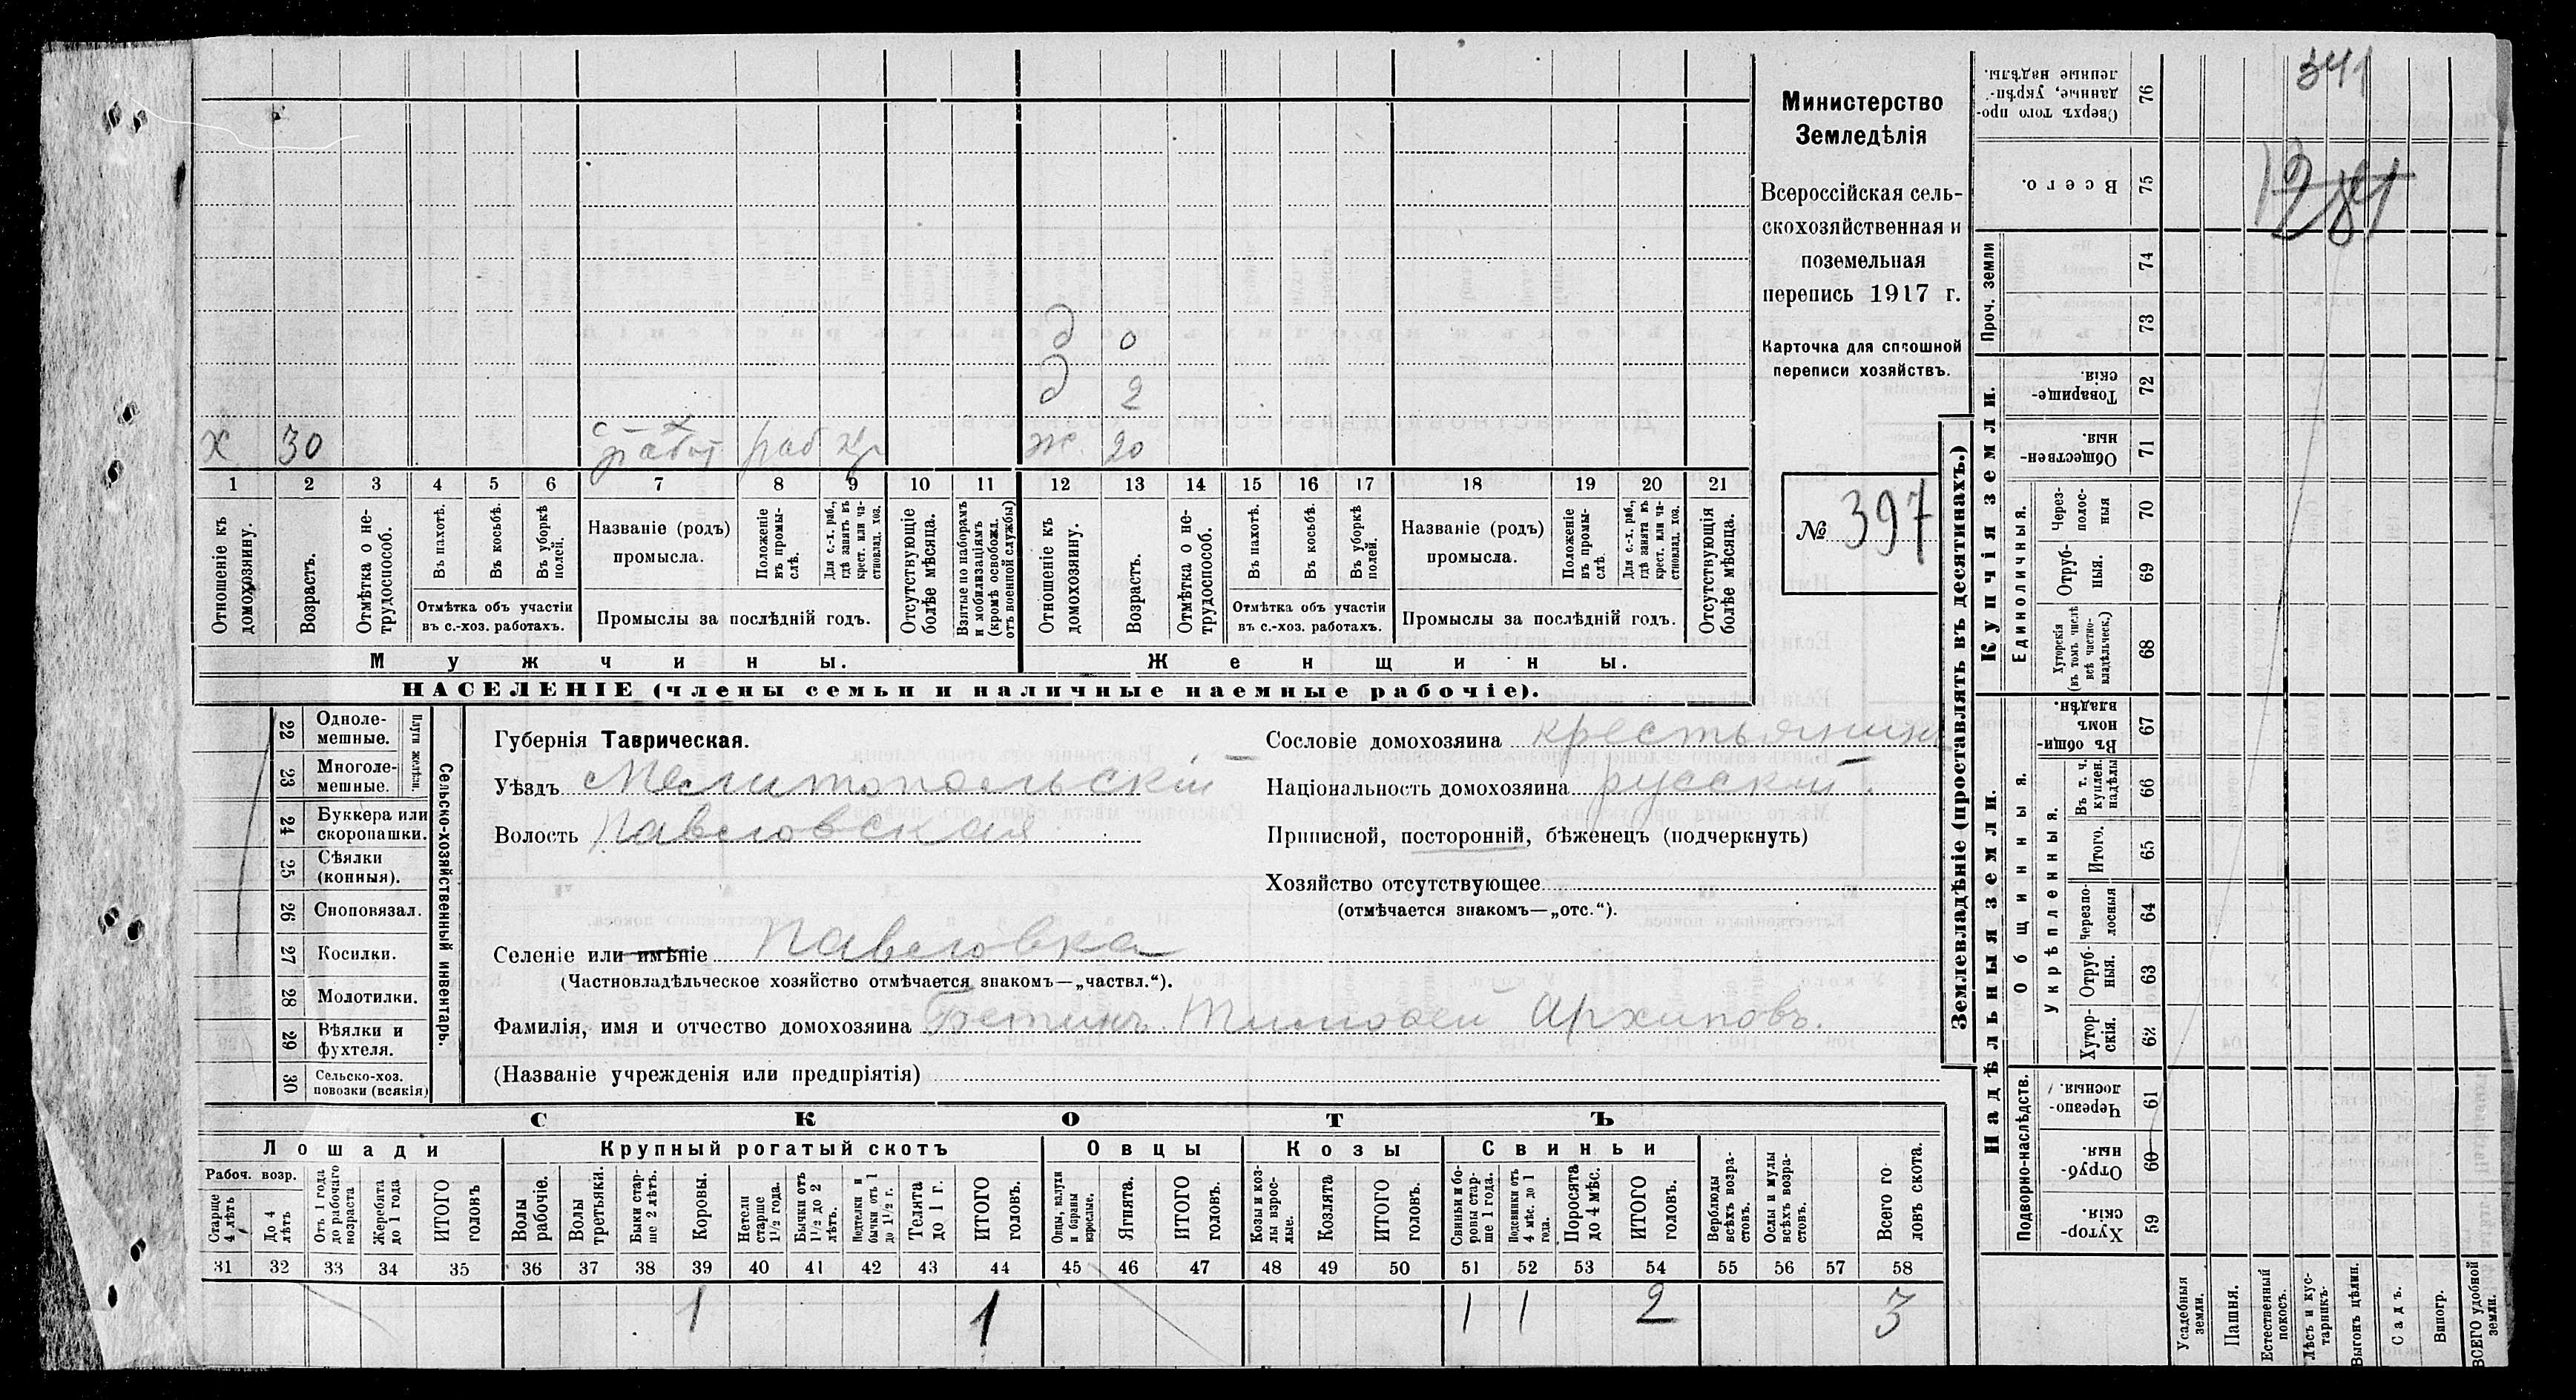 Министерство
Земледѣлія
Всероссійская сель-
скохозяйственная и
поземельная
перепись 1917 г.
Карточка для сплошной
переписи хозяйствъ.
№ 397
д 0
д 2
х 30 работ раб ж. 20
1 2 3 4 5 6 7 8 9 10 11 12 13 14 15 16 17 18 19 20 21
Отношеніе къ домохозяину.
Возрастъ.
Отмѣтка о не-
трудоспособ.
Въ пахотѣ.
Въ косьбѣ.
Въ уборкѣ
полей.
Отмѣтка объ участіи
въ с.-хоз. работахъ.
Названіе (родъ)
промысла.
Положеніе
въ промы-
слѣ.
Для с.-х. раб.,
гдѣ занятъ въ
крест. или ча-
стновлад. хоз.
Промыслы за послѣдній годъ.
Отсутствующіе
болѣе мѣсяца.
Взятые по наборамъ
и мобилизаціямъ
(кромѣ освобожд.
отъ военной службы)
Отношеніе къ
домохозяину.
Возрастъ.
Отмѣтка о не-
трудоспособ.
Въ пахотѣ.
Въ косьбѣ.
Въ уборкѣ
полей.
Отмѣтка объ участіи
въ с.-хоз. работахъ.
Названіе (родъ)
промысла.
Положеніе
въ промы-
слѣ.
Для с.-х. раб.,
гдѣ занята въ
крест. или ча-
стновлад. хоз.
Промыслы за послѣдній годъ.
Отсутствующія
болѣе мѣсяца.
Мужчины. Женщины.
НАСЕЛЕНІЕ (члены семьи и наличные наемные рабочіе).
22 Одноле-
мешные.
23 Многоле-
мешные.
Плуги желѣзн.
24 Буккера или
скоропашки.
25 Сѣялки
(конныя).
26 Сноповязал.
27 Косилки.
28 Молотилки.
29 Вѣялки и
фухтеля.
30 Сельско-хоз.
повозки (всякія)
Сельско-хозяйственный инвентарь.
Губернія Таврическая.
Уѣздъ Мелитопольскій
Волость Павловская
Селеніе или имѣніе Павловка
(Частновладѣльческое хозяйство отмѣчается знакомъ—„частвл.“).
Фамилія, имя и отчество домохозяина Тимофей Архиповъ.
(Названіе учрежденія или предпріятія)
Сословіе домохозяина крестьянинъ
Національность домохозяина русскій.
Приписной, посторонній, бѣженецъ (подчеркнуть)
Хозяйство отсутствующее
(отмѣчается знакомъ—„отс.“).
СКОТЪ
Лошади Крупный рогатый скотъ Овцы Козы Свиньи
Рабоч. возр.
Старше
4 лѣтъ
До 4
лѣтъ
Отъ 1 года
до рабочаго
возраста
Жеребята
до 1 года
ИТОГО
головъ
Волы
рабочіе.
Волы
третьяки.
Быки стар-
ше 2 лѣтъ.
Коровы.
Нетели
старше
1½ года.
Бычки отъ
1½ до 2
лѣтъ.
Подтелки и
бычки отъ 1
до 1½ г.
Телята
до 1 г.
ИТОГО
головъ.
Овцы, валухи
и бараны
взрослые.
Ягнята.
ИТОГО
головъ.
Козы и коз-
лы взрос-
лые.
Козлята
ИТОГО
головъ.
Свиньи и бо-
ровы стар-
ше 1 года.
Подсвинки отъ
4 мѣс. до 1
года.
Поросята
до 4 мѣс.
ИТОГО
головъ.
Верблюды
всѣхъ возра-
стовъ.
Ослы и мулы
всѣхъ возра-
стовъ.
Всего го-
ловъ скота.
31 32 33 34 35 36 37 38 39 40 41 42 43 44 45 46 47 48 49 50 51 52 53 54 55 56 57 58
1 1 1 1 2 3
Землевладѣніе (проставлять въ десятинахъ.)
Купчія земли.
Надѣльныя земли.
Проч. земли
Единоличныя.
Общинныя.
Укрѣпленныя.
Подворно-наслѣдств.
76 Сверхъ того про-
данные, укрѣп-
ленные надѣлы.
75 Всего.
74
73
72 Товарище-
скія.
71 Обществен-
ныя.
70 Через-
полос-
ныя
69 Отруб-
ныя.
68 Хуторскія
(въ томъ числѣ
всѣ частно-
владѣльческ.)
67 Въ общин-
номъ
владѣн.
66 Въ т. ч.
куплен.
надѣлы
65 Итого.
64 Черезпо-
лосныя
63 Отруб-
ныя.
62 Хутор-
скія.
61 Черезпо-
лосныя.
60 Отруб-
ныя
59 Хутор-
скія.
Усадебныя
земли.
Пашня.
Естественный
покосъ.
Лѣсъ и кус-
тарникъ.
Выгонъ цѣлин.
Садъ.
Виногр.
ВСЕГО удобной
земли.
341